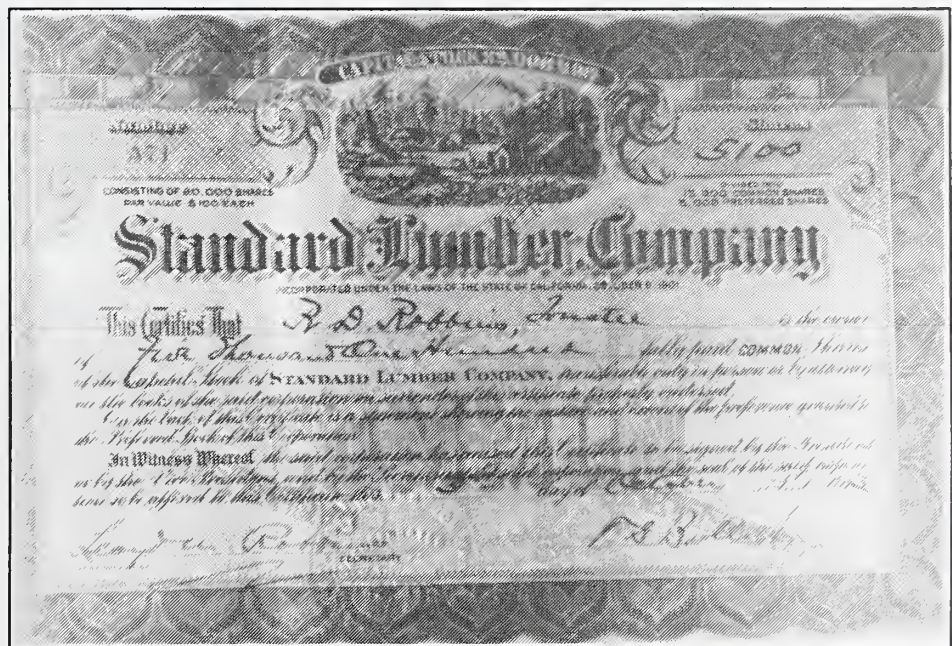 CAPITAL STOCK
Number
A71
Shares
5100
CONSISTING OF 20,000 SHARES
PAR VALUE $100 EACH
DIVIDED INTO
COMMON SHARES
PREFERRED SHARES
Standard Lumber Company
INCORPORATED UNDER THE LAWS OF THE STATE OF CALIFORNIA, 1901
This Certifies That R D Robbins, Trustee is the owner
of Five Thousand One Hundred fully paid COMMON Shares
of the Capital Stock of STANDARD LUMBER COMPANY, transferable only in person or by attorney
on the books of the said corporation on surrender of this certificate properly endorsed.
On the back of this Certificate is a statement showing the nature and extent of the preference granted to
the Preferred Stock of this Corporation
In Witness Whereof, the said corporation has caused this Certificate to be signed by the President
or by the Vice President, and by the Secretary of said corporation and the seal of the said
to be affixed to this Certificate this day of October
SECRETARY